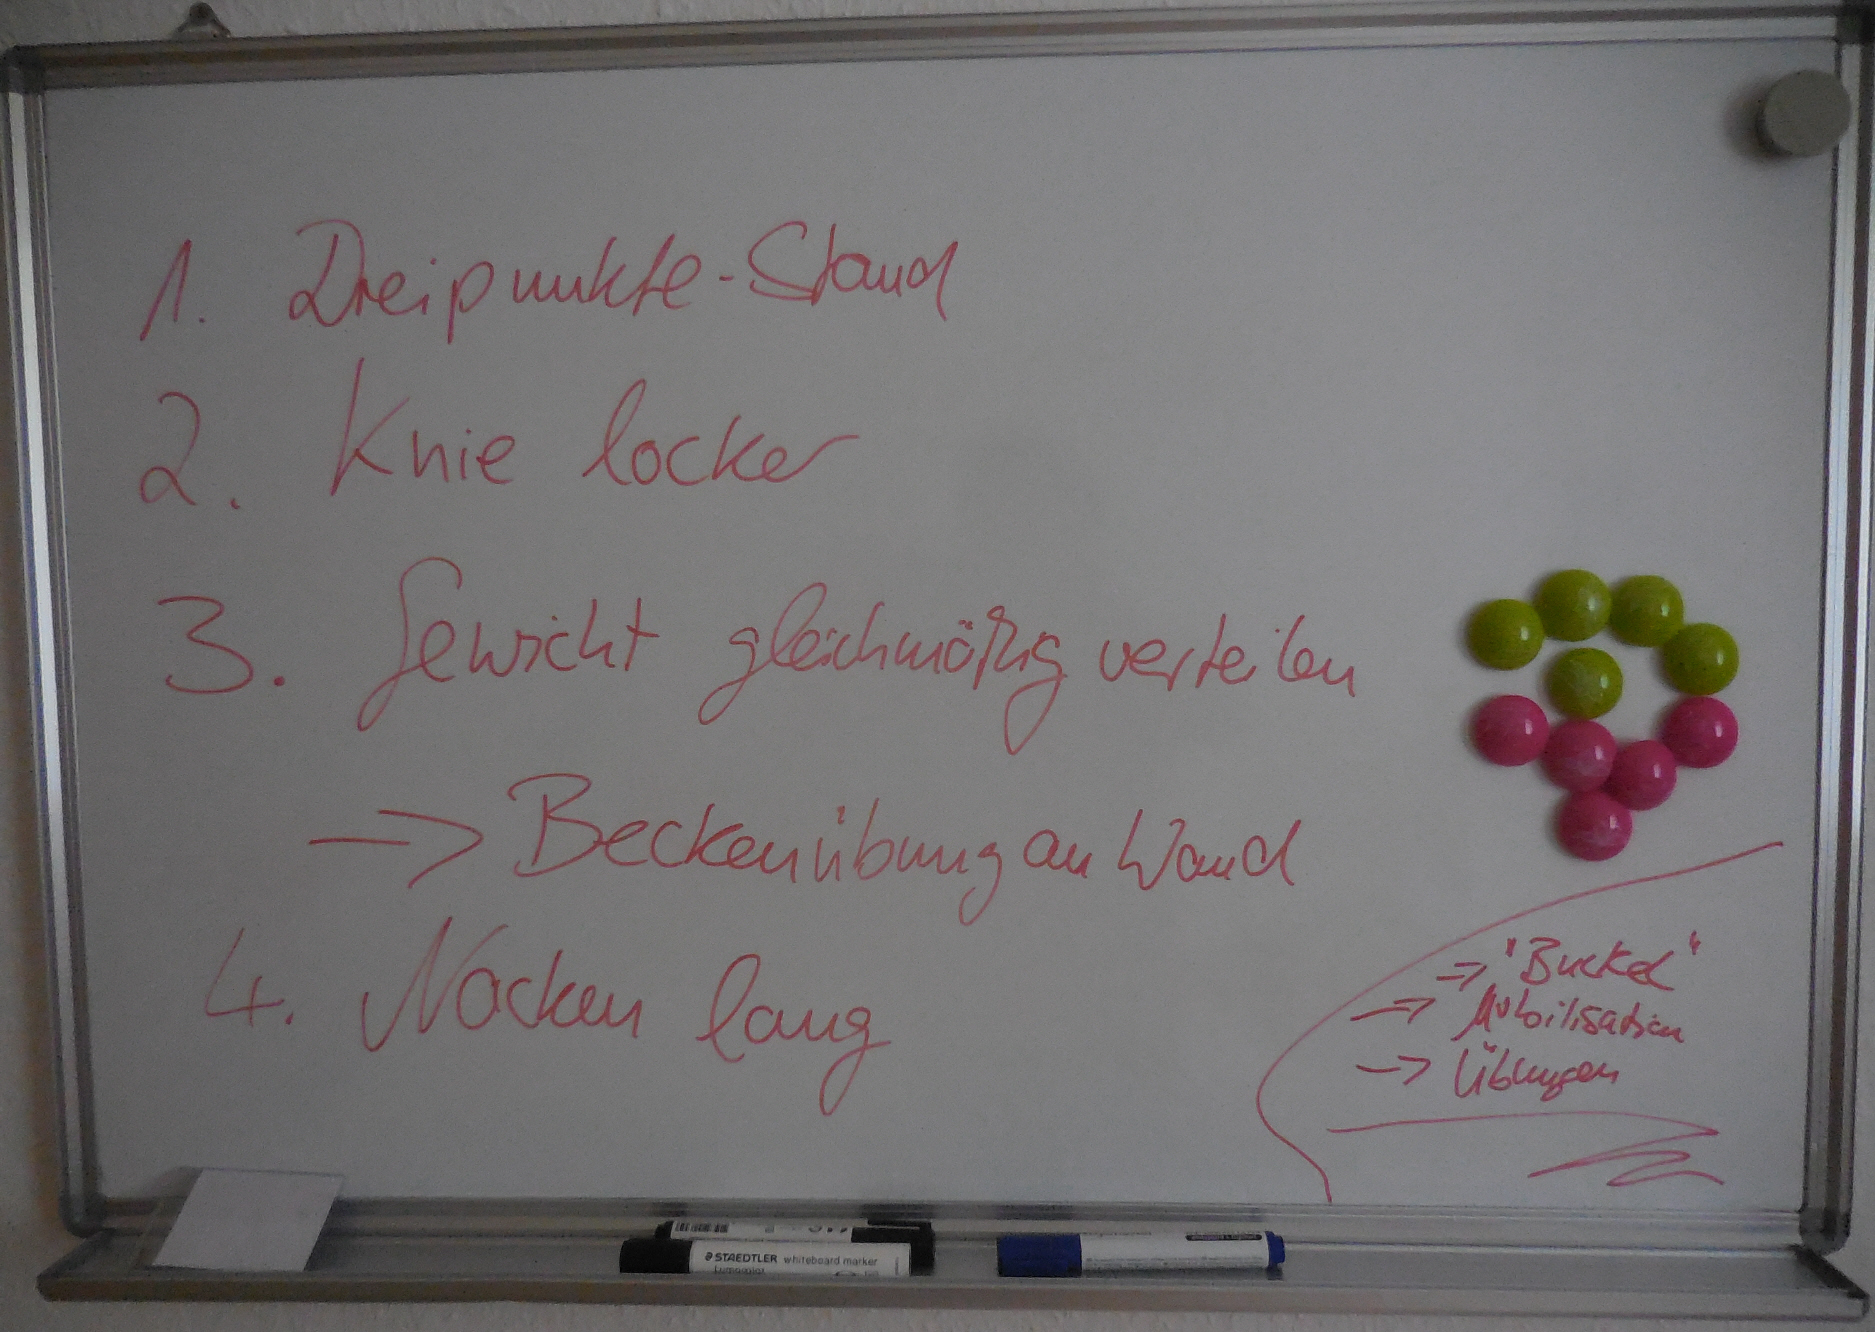 1. Dreipunkte-Stand
2. Knie locker
3. Gewicht gleichmäßig verteilen
-> Beckenübung an Wand
4. Nacken lang
-> "Buckel"
-> Mobilisation
-> Übungen
STAEDTLER whiteboard marker
Lumocolor